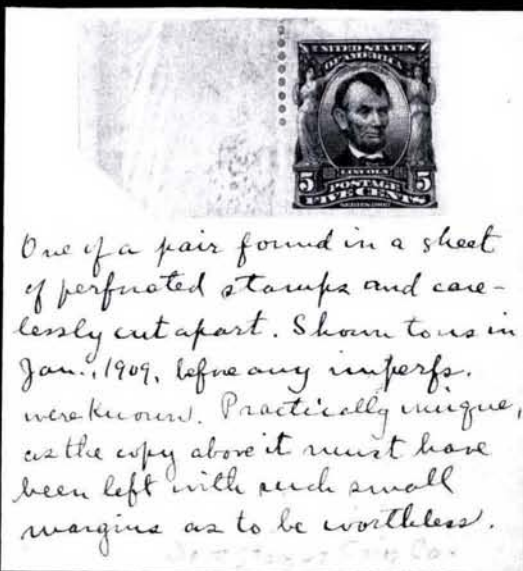 UNITED STATES
OF AMERICA
LINCOLN
5 POSTAGE 5
FIVE CENTS
SERIES 1902
One of a pair found in a sheet
of perforated stamps and care-
lessly cut apart. Shown to us in
Jan., 1909, before any imperfs.
were known. Practically unique,
as the copy above it must have
been left with such small
margins as to be worthless.